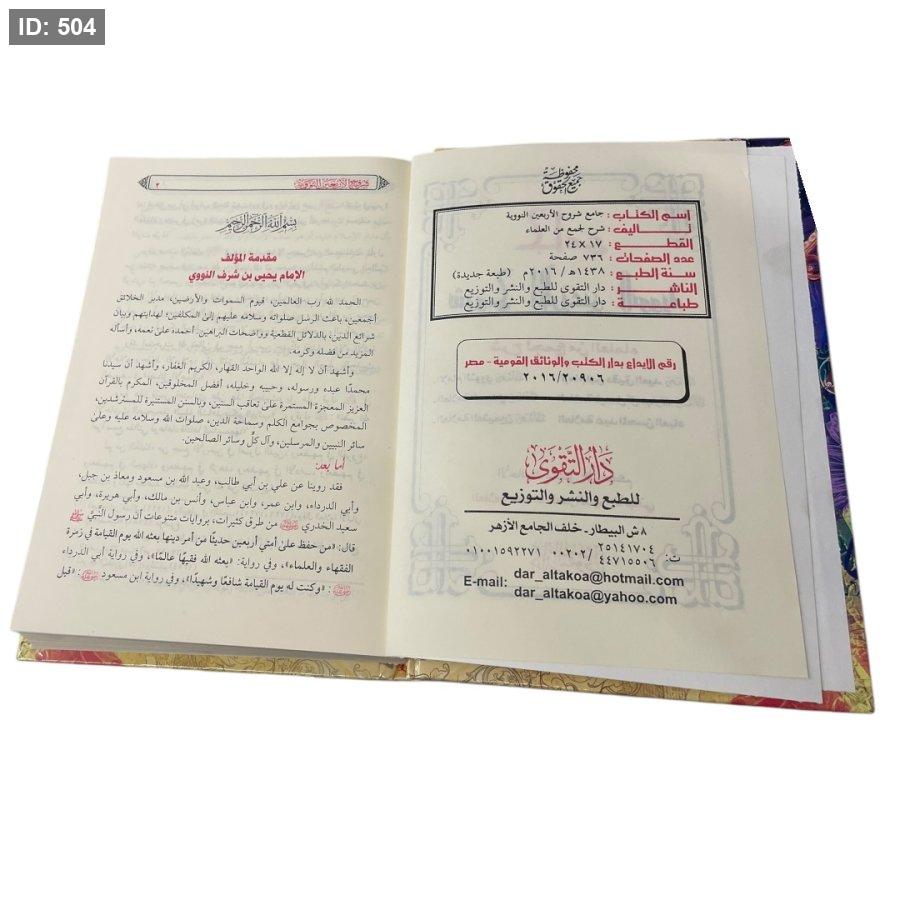 ID: 504
جميع الحقوق محفوظة
إسم الكتاب : جامع شروح الأربعين النووية
تأليف : شرح لجمع من العلماء
القطع : ١٧ × ٢٤
عدد الصفحات : ٧٣٦ صفحة
سنة الطبع : ١٤٣٨هـ / ٢٠١٦م (طبعة جديدة)
الناشر : دار التقوى للطبع والنشر والتوزيع
طباعة : دار التقوى للطبع والنشر والتوزيع
رقم الايداع بدار الكتب والوثائق القومية - مصر
٢٠١٦/٢٠٩٠٦
دار التقوى
للطبع والنشر والتوزيع
٨ ش البيطار - خلف الجامع الأزهر
ت: ٢٥١٤١٧٠٤ / ٤٤٧١٥٥٠٦ /٠٠٢٠٢ ٠١٠٠١٥٩٢٢٧١
E-mail: dar_altakoa@hotmail.com
dar_altakoa@yahoo.com
شروح الأربعين النووية ٣
بسم الله الرحمن الرحيم
مقدمة المؤلف
الإمام يحيى بن شرف النووي
الحمد لله رب العالمين، قيوم السموات والأرضين، مدبر الخلائق
أجمعين، باعث الرسل صلواته وسلامه عليهم إلى المكلفين؛ لهدايتهم وبيان
شرائع الدين، بالدلائل القطعية وواضحات البراهين. أحمده على نعمه، وأسأله
المزيد من فضله وكرمه.
وأشهد أن لا إله إلا الله الواحد القهار، الكريم الغفار، وأشهد أن سيدنا
محمدًا عبده ورسوله، وحبيبه وخليله، أفضل المخلوقين، المكرم بالقرآن
العزيز المعجزة المستمرة على تعاقب السنين، وبالسنن المستنيرة للمسترشدين،
المخصوص بجوامع الكلم وسماحة الدين، صلوات الله وسلامه عليه وعلى
سائر النبيين والمرسلين، وآل كلٍّ وسائر الصالحين.
أما بعد:
فقد روينا عن علي بن أبي طالب، وعبد الله بن مسعود ومعاذ بن جبل،
وأبي الدرداء، وابن عمر، وابن عباس، وأنس بن مالك، وأبي هريرة، وأبي
سعيد الخدري من طرق كثيرات، بروايات متنوعات أن رسول النَّبيَّ ﷺ
قال: «من حفظ على أمتي أربعين حديثًا من أمر دينها بعثه الله يوم القيامة في زمرة
الفقهاء والعلماء»، وفي رواية: «بعثه الله فقيهًا عالمًا»، وفي رواية أبي الدرداء
: «وكنت له يوم القيامة شافعًا وشهيدًا»، وفي رواية ابن مسعود : «قيل